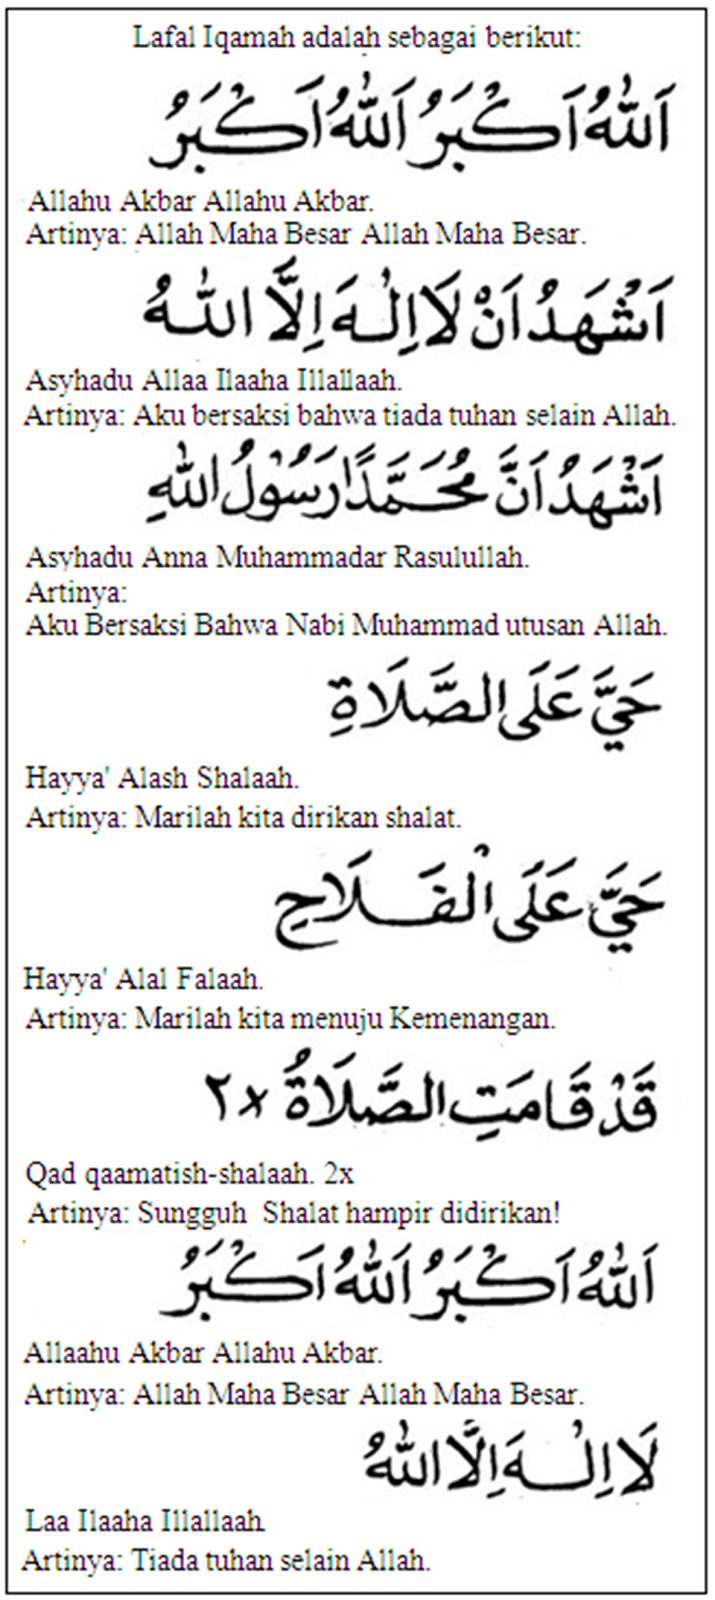 Lafal Iqamah adalah sebagai berikut:
اَللّٰهُ اَكْبَرُ اَللّٰهُ اَكْبَرُ
Allahu Akbar Allahu Akbar.
Artinya: Allah Maha Besar Allah Maha Besar.
اَشْهَدُ اَنْ لَا اِلٰهَ اِلَّا اللّٰهُ
Asyhadu Allaa Ilaaha Illallaah.
Artinya: Aku bersaksi bahwa tiada tuhan selain Allah.
اَشْهَدُ اَنَّ مُحَمَّدًا رَسُوْلُ اللّٰهِ
Asyhadu Anna Muhammadar Rasulullah.
Artinya:
Aku Bersaksi Bahwa Nabi Muhammad utusan Allah.
حَيَّ عَلَى الصَّلَاةِ
Hayya' Alash Shalaah.
Artinya: Marilah kita dirikan shalat.
حَيَّ عَلَى الْفَلَاحِ
Hayya' Alal Falaah.
Artinya: Marilah kita menuju Kemenangan.
قَدْ قَامَتِ الصَّلَاةُ ×٢
Qad qaamatish-shalaah. 2x
Artinya: Sungguh Shalat hampir didirikan!
اَللّٰهُ اَكْبَرُ اَللّٰهُ اَكْبَرُ
Allaahu Akbar Allahu Akbar.
Artinya: Allah Maha Besar Allah Maha Besar.
لَا اِلٰهَ اِلَّا اللّٰهُ
Laa Ilaaha Illallaah
Artinya: Tiada tuhan selain Allah.